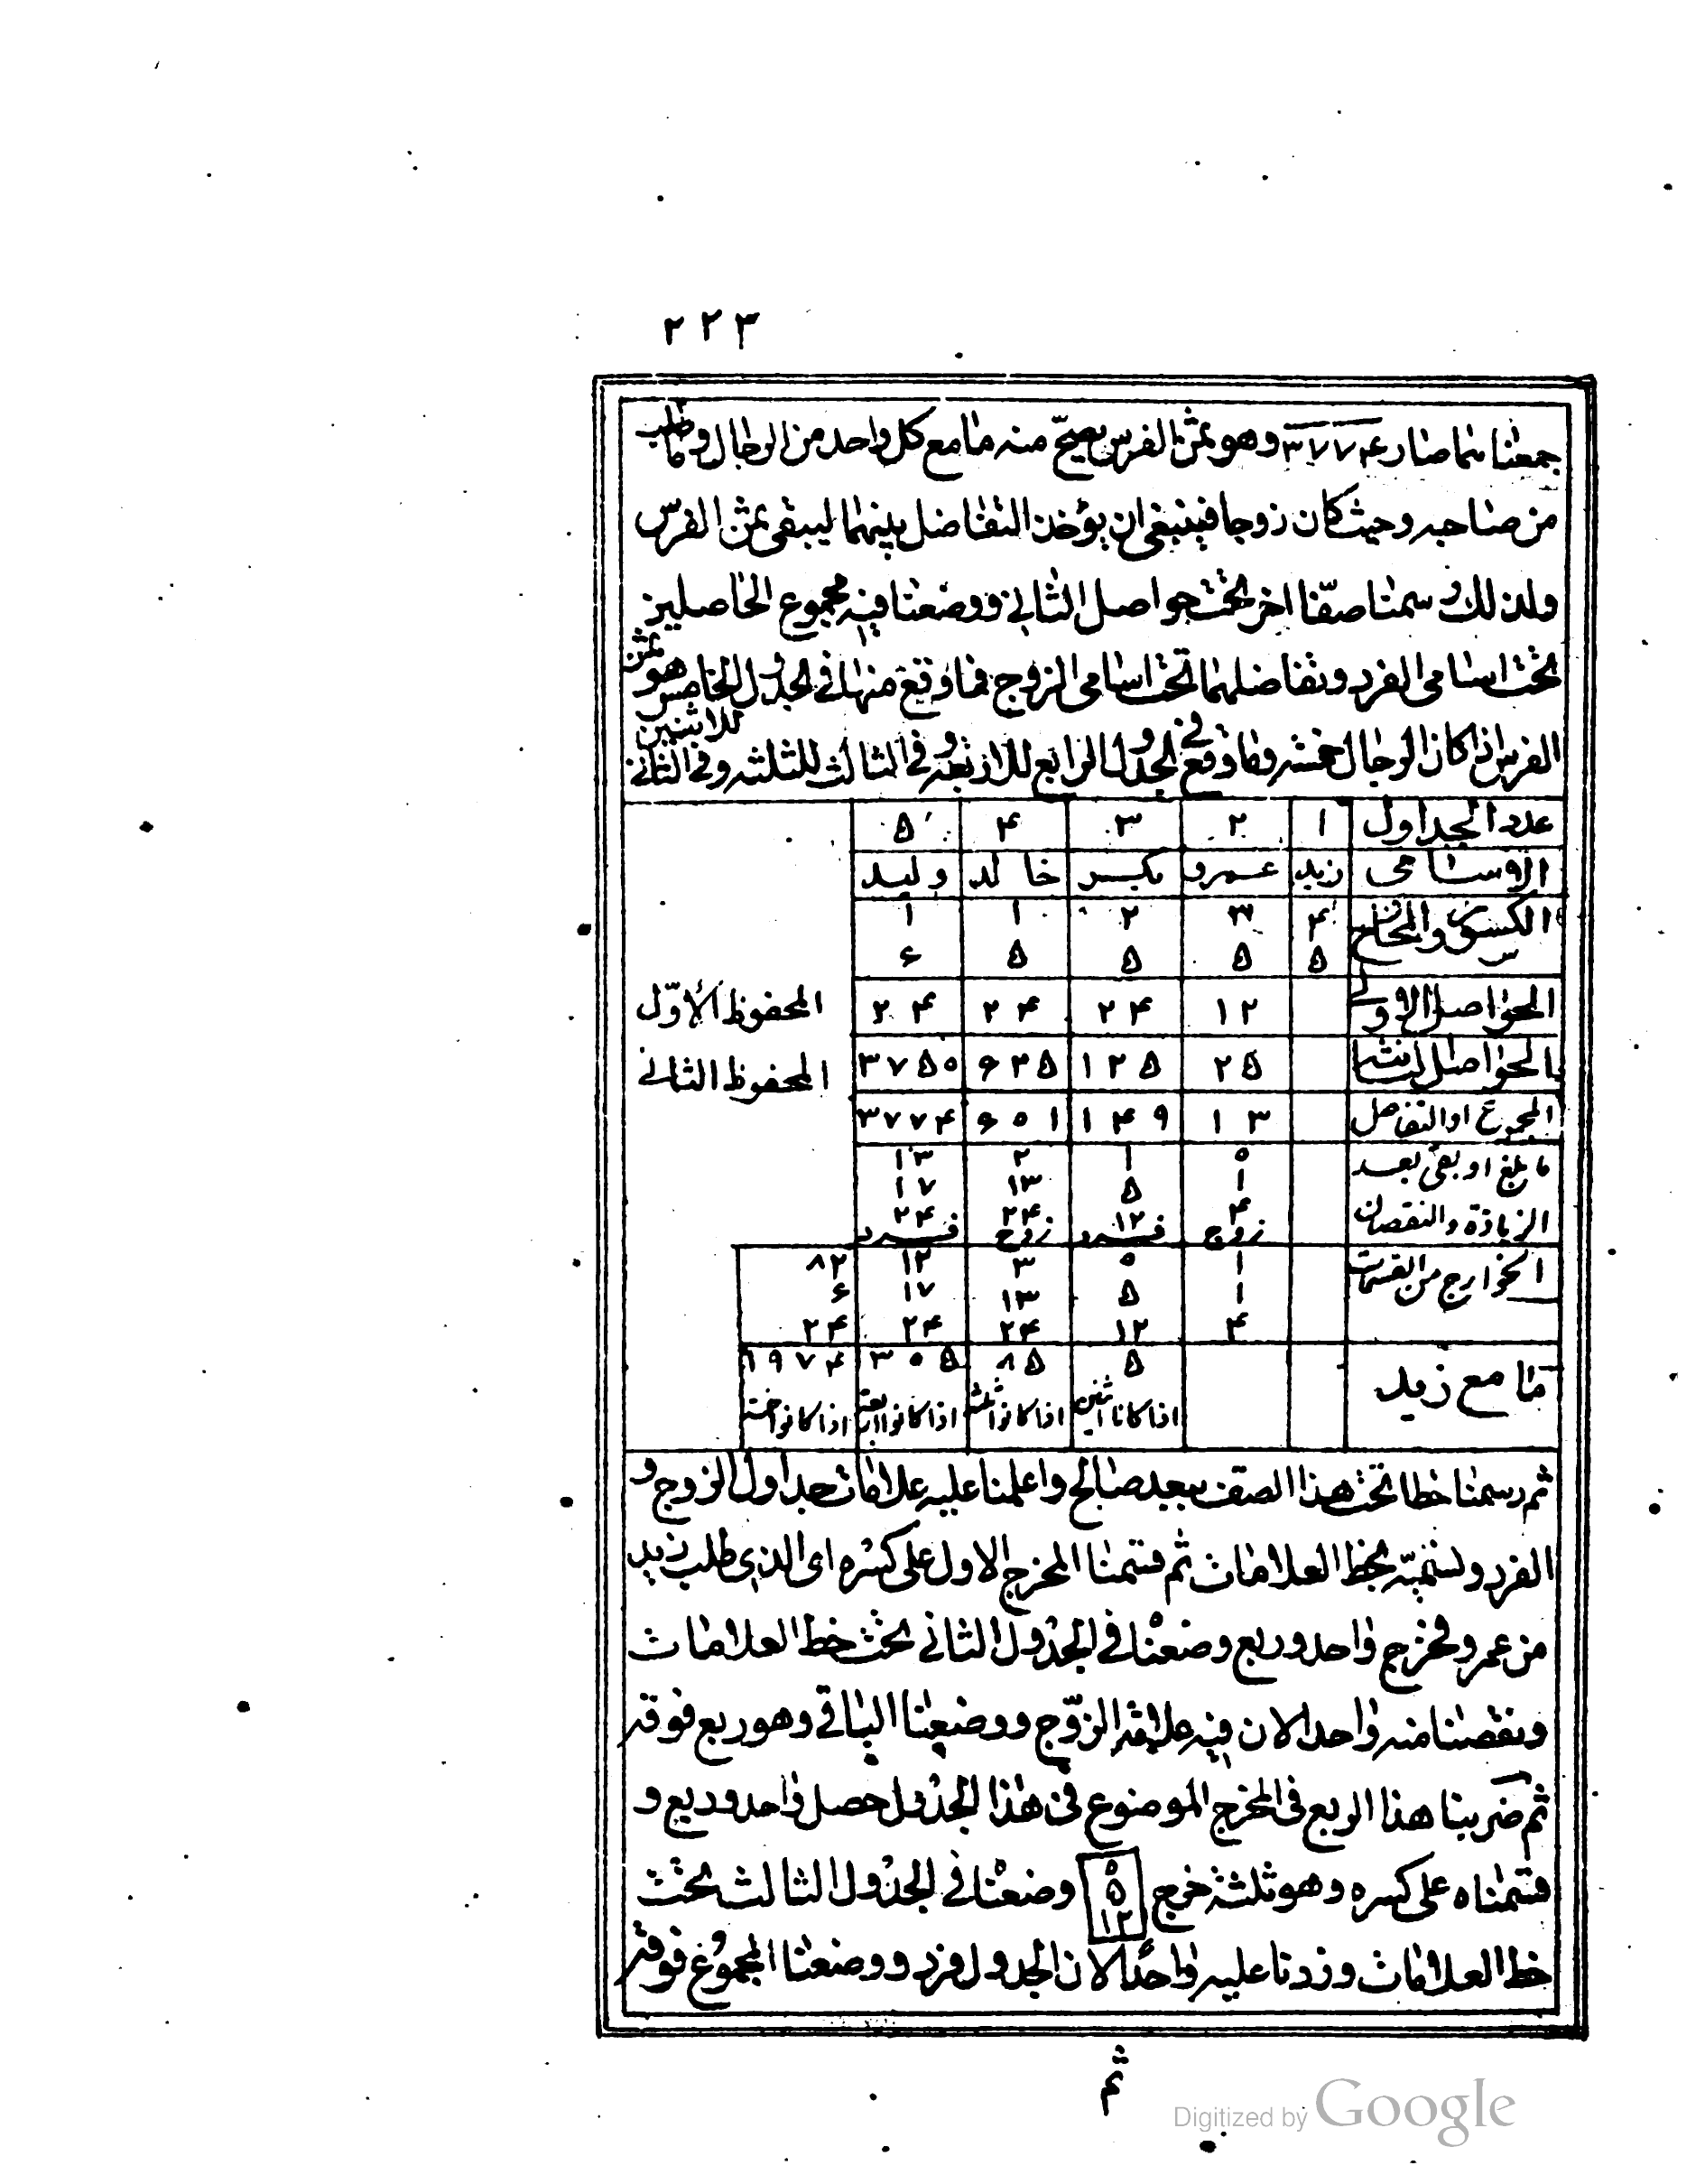 ٢٢٣
جمعناهما صار ٣٧٧۴ وهو ثمن الفرس يصحّ منه ما مع كل واحد من الرجال وما طلب
من صاحبه وحيث كان زوجا فينبغى ان يؤخذ التفاضل بينهما ليبقى ثمن الفرس
ولذلك رسمنا صفّا اخر تحت حواصل الثانى ووضعنا فيه مجموع الحاصلين
تحت اسامى الفرد وتفاضلهما تحت اسامى الزوج فما وقع منها فى الجدول الخامس هو ثمن
الفرس اذا كان الرجال خمسة وما وقع فى الجدول الرابع للاربعة وفى الثالث للثلثة وفى الثانى للاثنين
عدد الجداول ١ ٢ ٣ ۴ ۵
الاسامى زيد عمرو بكر خالد وليد
الكسور والمخارج ۴ ٣ ٢ ١ ١
۵ ۵ ۵ ۵ ۶
الحواصل الاولى ١٢ ٢۴ ٢۴ ٢۴ المحفوظ الأوّل
الحواصل الثانية ٢۵ ١٢۵ ۶٢۵ ٣٧۵٠ المحفوظ الثانى
المجموع او التفاضل ١٣ ١۴٩ ۶٠١ ٣٧٧۴
ما بلغ او بقى بعد ٠ ١ ٢ ١٣
١ ۵ ١٣ ١٧
الزيادة والنقصان ۴ ١٢ ٢۴ ٢۴
زوج فرد زوج فرد
الخوارج من القسمات ١ ٠ ٣ ١٢ ٨٢
١ ۵ ١٣ ١٧ ۶
۴ ١٢ ٢۴ ٢۴ ٢۴
ما مع زيد ۵ ٨۵ ٣٠۵ ١٩٧۴
اذا كانا اثنين اذا كانوا ثلثة اذا كانوا اربعة اذا كانوا خمسة
ثم رسمنا خطا تحت هذا الصف ببعد صالح واعلمنا عليه علامات جداول الزوج و
الفرد ولنسمّه بخط العلامات ثم قسمنا المخرج الاول على كسره اى الذى طلب زيد
من عمرو فخرج واحد وربع وضعنا فى الجدول الثانى تحت خط العلامات
ونقصنا منه واحدا لان فيه علامة الزوّج ووضعنا الباقى وهو ربع فوقه
ثم ضربنا هذا الربع فى المخرج الموضوع فى هذا الجدول حصل واحد وربع و
قسمناه على كسره وهو ثلثة خرج ٠ ۵ ١٢ وضعنا فى الجدول الثالث تحت
خط العلامات وزدنا عليه واحدًا لان الجدول فرد ووضعنا المجموع فوقه
ثم
Digitized by Google